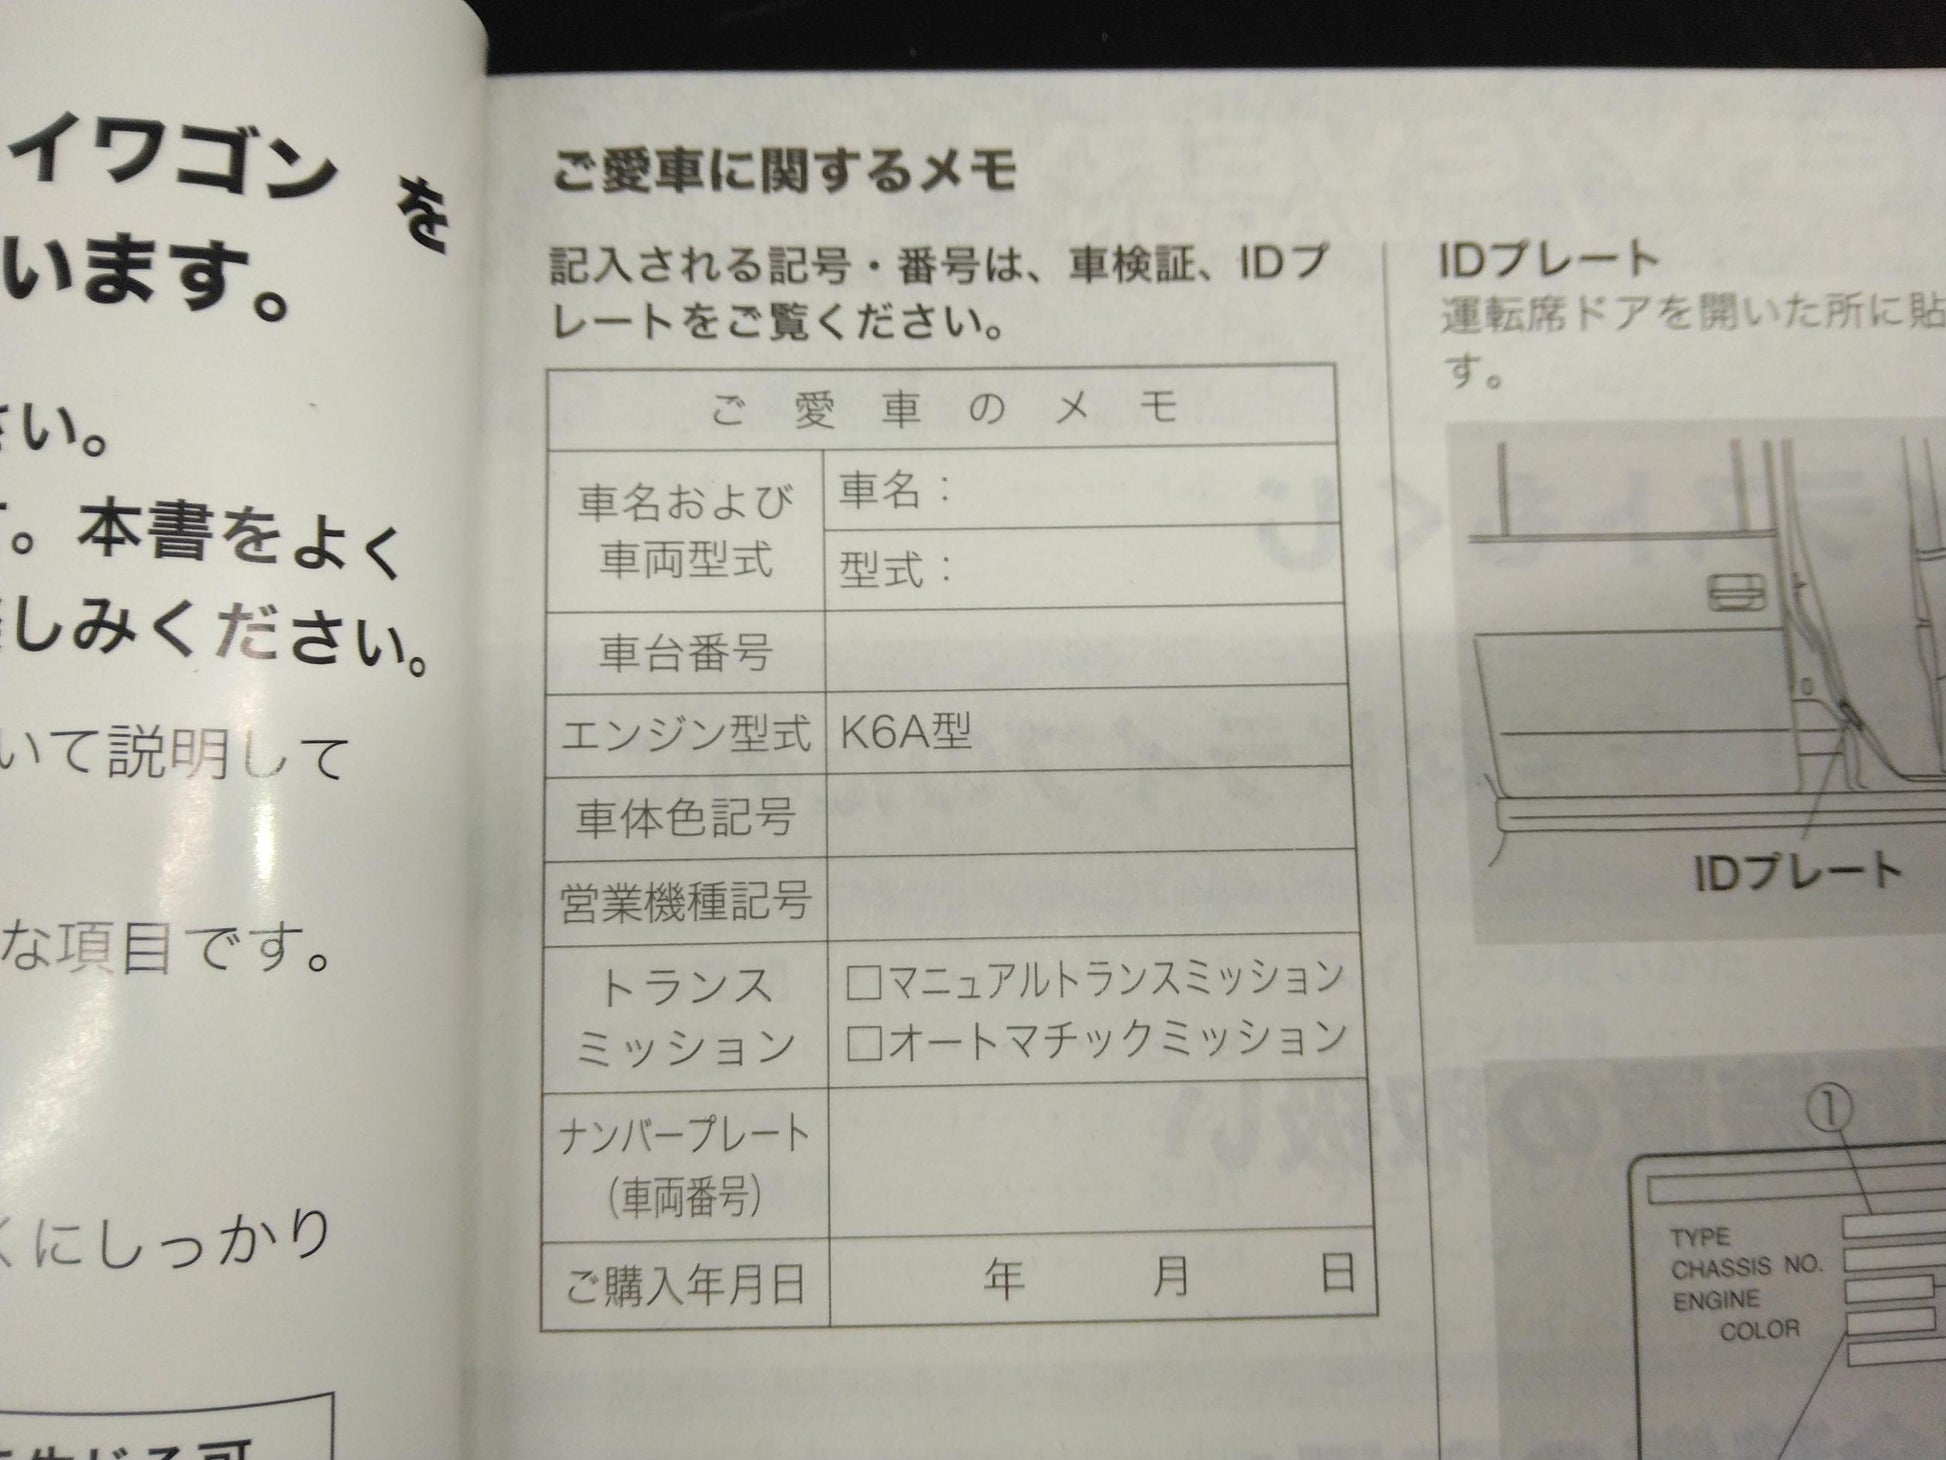 イワゴン を
います。
さい。
す。本書をよく
しみください。
いて説明して
な項目です。
くにしっかり
ご愛車に関するメモ
記入される記号・番号は、車検証、IDプ
レートをご覧ください。
ご愛車のメモ
車名および
車両型式
車名：
型式：
車台番号
エンジン型式 K6A型
車体色記号
営業機種記号
トランス
ミッション
□マニュアルトランスミッション
□オートマチックミッション
ナンバープレート
(車両番号)
ご購入年月日 年 月 日
IDプレート
運転席ドアを開いた所に貼
す。
IDプレート
①
TYPE
CHASSIS NO.
ENGINE
COLOR